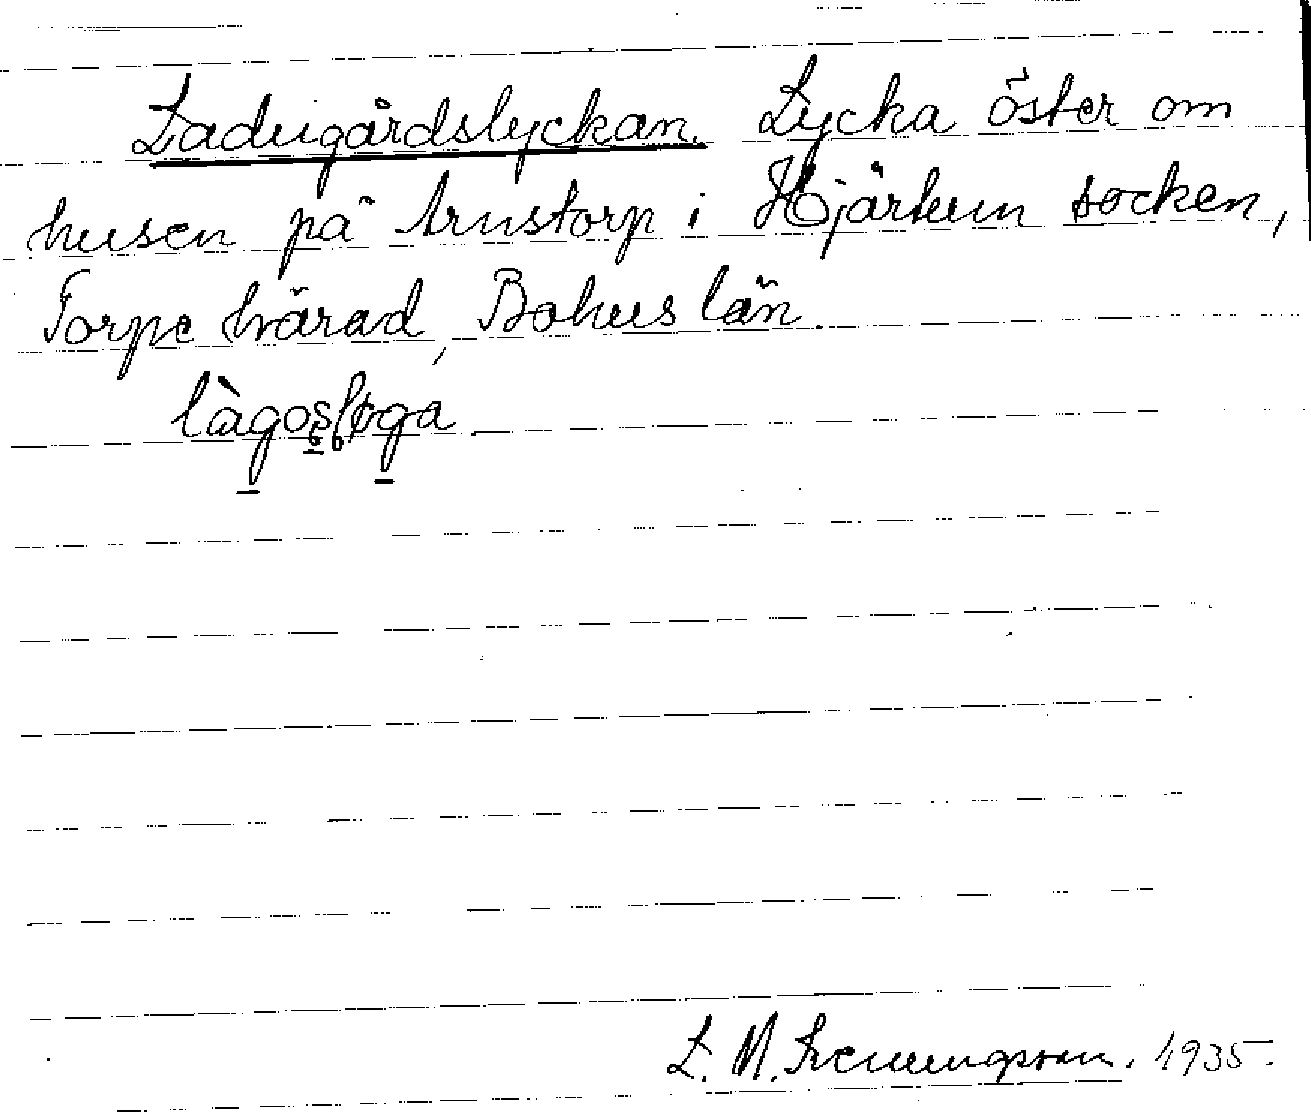 Ladugårdslyckan. Lycka öster om
husen på Arnstorp i Hjärtum socken,
Torpe härad, Bohus län.
L. M. 1935.